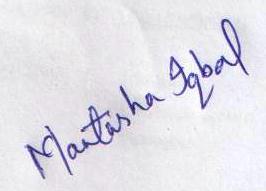 Mantasha Iqbal